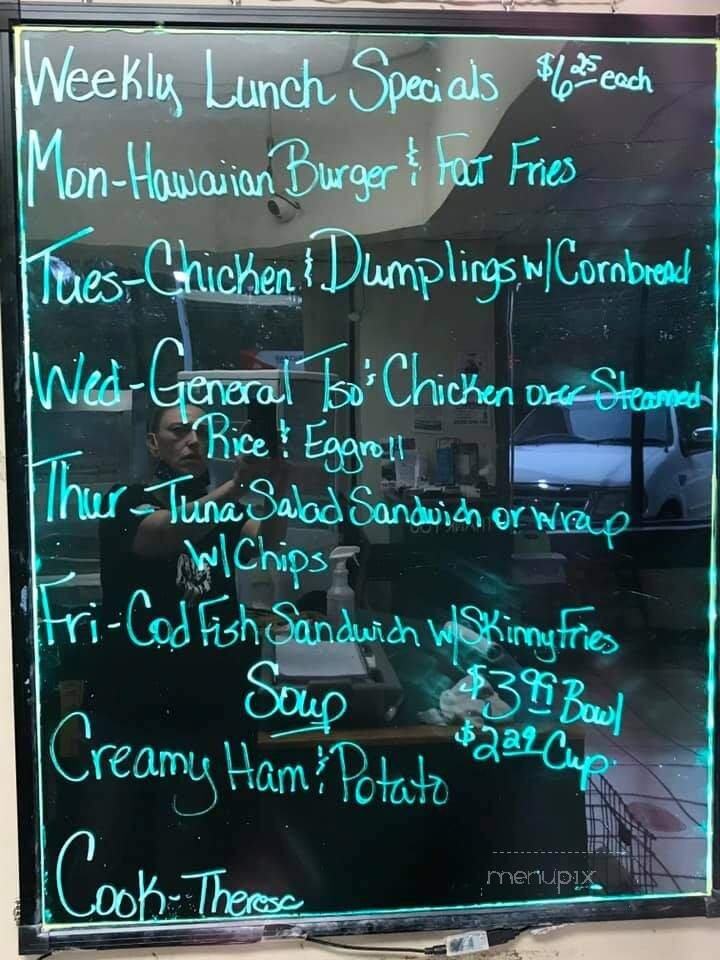 Weekly Lunch Specials $6.25 each
Mon-Hawaiian Burger & Fat Fries
Tues-Chicken & Dumplings w/Cornbread
Wed-General Tso's Chicken over Steamed
Rice & Eggroll
Thur-Tuna Salad Sandwich or wrap
w/Chips
Fri-Cod Fish Sandwich w/Skinny Fries
Soup $3.99 Bowl
$2.29 Cup
Creamy Ham & Potato
Cook-Theresa
menupix